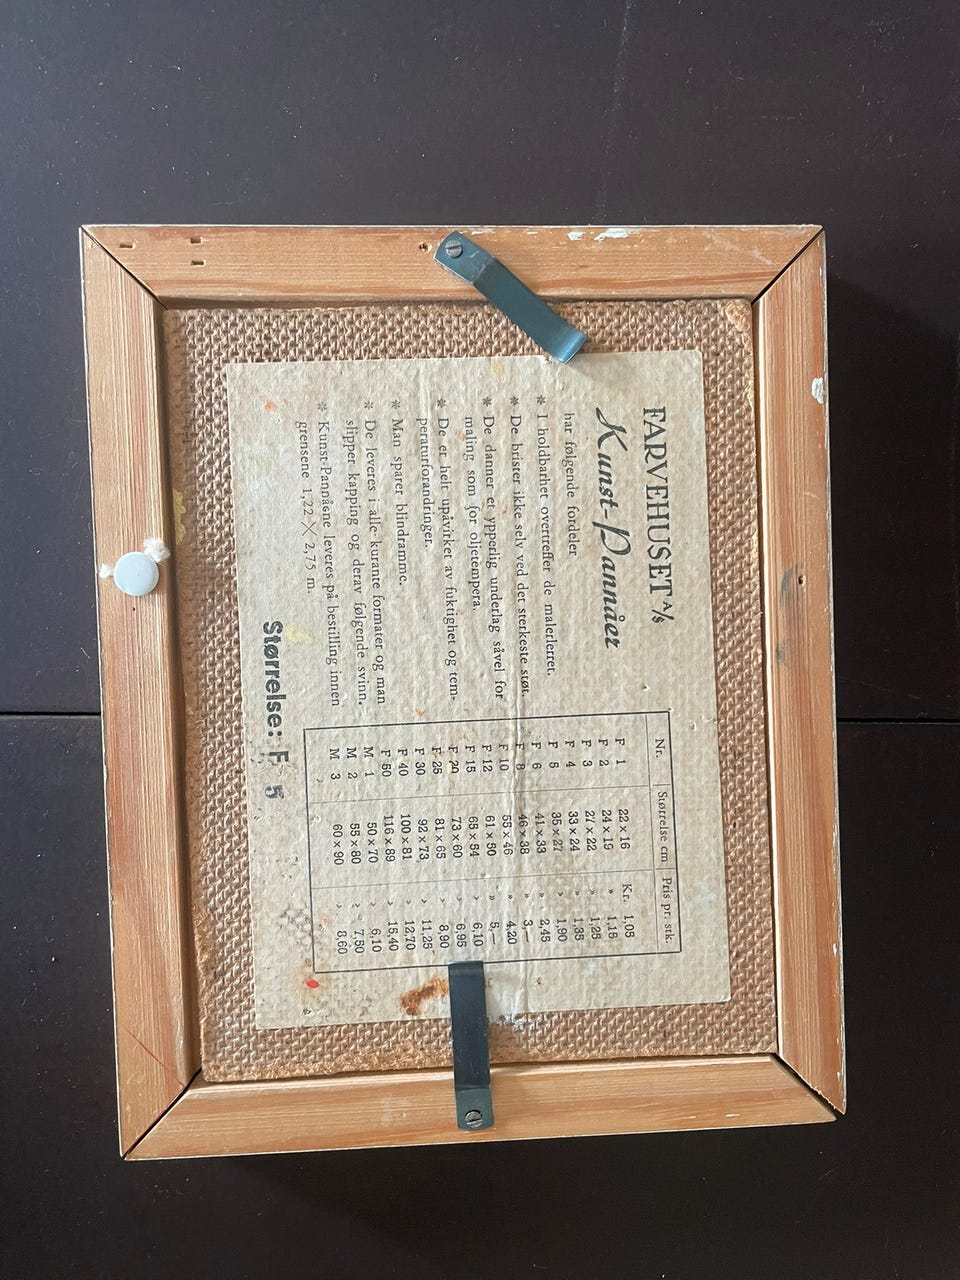 FARVEHUSET A/S
Kunst-Pannåer
har følgende fordeler
* I holdbarhet overtreffer de malerlerret.
* De brister ikke selv ved det sterkeste støt.
* De danner et ypperlig underlag såvel for
maling som for oljetempera.
* De er helt upåvirket av fuktighet og tem-
peraturforandringer.
* Man sparer blindramme.
* De leveres i alle kurante formater og man
slipper kapping og derav følgende svinn.
* Kunst-Pannåene leveres på bestilling innen
grensene 1,22 × 2,75 m.
Størrelse: F 5
Nr. Størrelse cm Pris pr. stk.
F 1 22 × 16 Kr. 1,05
F 2 24 × 19 » 1,15
F 3 27 × 22 » 1,25
F 4 33 × 24 » 1,35
F 5 35 × 27 » 1,90
F 6 41 × 33 » 2,45
F 8 46 × 38 » 3,—
F 10 55 × 46 » 4,20
F 12 61 × 50 » 5,—
F 15 65 × 54 » 6,10
F 20 73 × 60 » 6,95
F 25 81 × 65 » 8,90
F 30 92 × 73 » 11,25
F 40 100 × 81 » 12,70
F 50 116 × 89 » 15,40
M 1 50 × 70 » 6,10
M 2 55 × 80 » 7,50
M 3 60 × 90 » 8,60